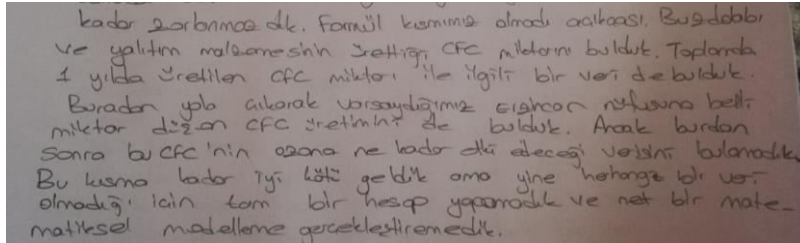 kadar zorlanmazdık. Formül kısmımız olmadı açıkçası. Buzdolabı
ve yalıtım malzemesinin ürettiği CFC miktarını bulduk. Toplamda
1 yılda üretilen CFC miktarı ile ilgili bir veri de bulduk.
Buradan yola çıkarak varsaydığımız Erzincan nüfusuna belli
miktar düşen CFC üretimini de bulduk. Ancak burdan
sonra bu CFC'nin ozona ne kadar etki edeceği verisini bulamadık.
Bu kısma kadar iyi kötü geldik ama yine herhangi bir veri
olmadığı için tam bir hesap yapamadık ve net bir mate-
matiksel modelleme gerçekleştiremedik.